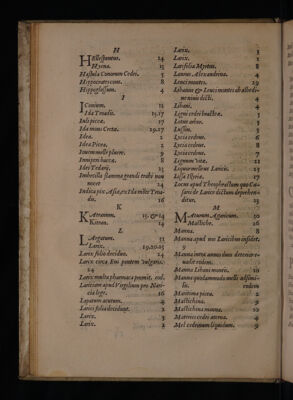 H
HEllesponton. 24
Hyæna. 15
Hastula Conorum Cedri. 5
Hippocratis cum. 8
Hippoglossum. 4
I
IConium. 12
Ida Troadis. 15.17
Iuli picea. 17
Ida mons Creta. 19.27
Idea. 2
Idea Picea. 2
Iouem molle pluere. 9
Iuniperi bacca. 8
Idei Tedarij. 25
Imbricilis flamma grandi trabi non
nocet 24
Indica pix Asia, ex Ida mitte Troa-
dis. 16
K
KAtranum. 15. & 24
Kitran. 24
L
LArgatum. 31
Larix. 19.20.25
Larix folio deciduo. 24
Larix circa Eni pontem vulgaris.
24
Larix multa pharmaca promit. eod.
Laricum apud Vergilium pro Nar-
cia lege. 16
Lapatum acutum. 4
Larici folia decidunt. 2
Larix. 3
Larix. 2
Larix. 3
Larix. 29
Latifolia Myrtus. 8
Laurus Alexandrina. 4
Leuci montes. 29
Libanus & Leuci montes ab albedi-
ne niuis dicti. 4
Libani. 4
Ligni cedri bractea. 5
Lotus arbor. 5
Lussim. 5
Lycia cedrus. 6
Lycia cedrus. 8
Lycia cedrus. 7
Lignum vitæ. 21
Liquor melleus Laricis. 23
Lissa Illyria. 17
Locus apud Theophrastum quo Cæ-
sare de Larice dictum deprehendi-
tur. 25
M
MAcrum Aganicum. 30
Mastiche. 26
Manna. 8
Manna apud nos Laricibus insidet.
9
Manna intra annos duos deterior e-
uadit eodem.
Manna Libani montis. 10
Manna quodammodo melli assimi-
lis. eodem
Maritima picea. 2
Mastichina. 9
Mastichina manna. 10
Materies cedri aterna. 4
Mel cedrinum liquidum. 9